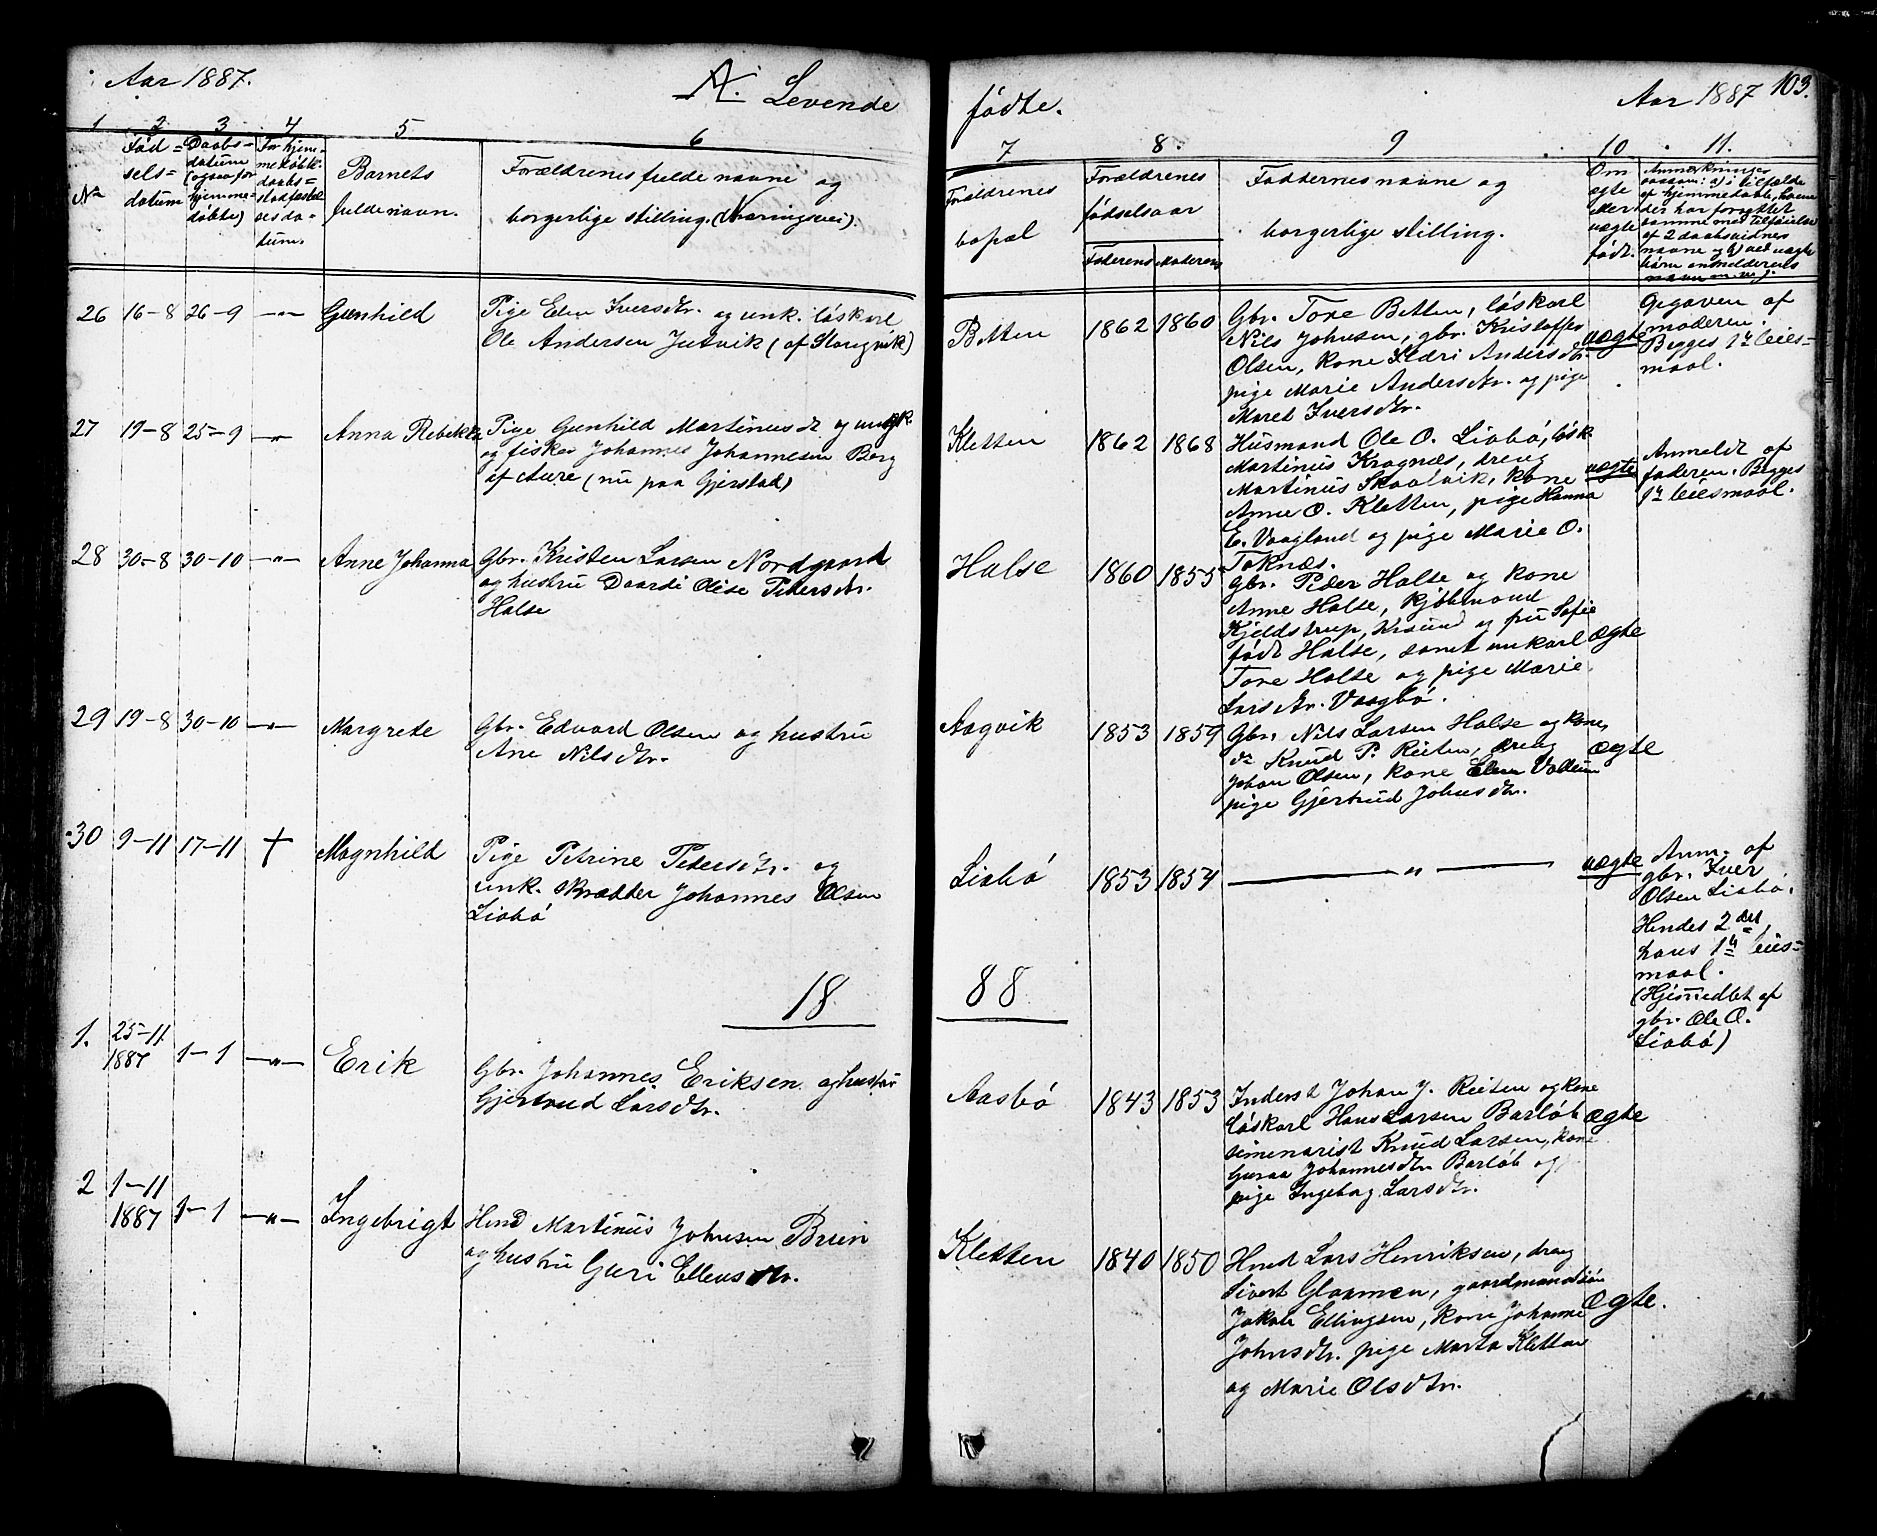 Aar 1887.
A. Levende
fødte.
Aar 1887 103.
1 2 3 4 5 6
7 8. 9 10 11.
No
Fød=
sels=
datum
Daabs=
datum
(ogsaa for
hjemme=
døbte)
For hjem=
medøbte:
daabs=
stadfæstel
ses da=
tum.
Barnets
fulde navn.
Forældrenes fulde navne og
borgerlige stilling. (Næringsvei).
Forældrenes
bopæl
Forældrenes
fødselsaar
Faderens Moderens
Faddernes navne og
borgerlige stilling.
Om
ægte
eller
uægte
født.
Anmærkninger
saasom: a) i tilfælde
af hjemmedaab, hvem
der har forrettet
samme med tilføielse
af 2 daabsvidners
navne og b) ved uægte
børn anmelderens
navn m. v.
26 16-8 26-9 —„— Gunhild
Pige Elen Iversdtr. og unk. løskarl
Ole Andersen Jutvik (af Stangvik)
Betten 1862 1860
Gbr. Tore Betten, løskarl
Nils Johnsen, gbr. Kristoffer
Olsen, kone Sldri Andersdtr.
pige Marie Andersdtr. og pige
Maret Iversdtr.
uægte
Opgaven af
moderen.
Begges 1ste leies=
maal.
27 19-8 25-9 —„— Anna Rebekka
Pige Gunhild Martinusdt og ungk.
og fisker Johannes Johannesen Berg
af Aure (nu paa Gjerstad)
Kletten 1862 1868
Husmand Ole O. Liabø, løsk.
Martinus Kragnæs, dreng
Martinus Skaalvik, kone
Anne O. Kletten, pige Hanna
E. Vaagland og pige Marie O.
Toknæs.
uægte
Anmeldt af
faderen. Begges
1ste leiesmaal.
28 30-8 30-10 —„— Anne Johanna
Gbr. Kristen Larsen Nordgaard
og hustru Daardi Olise Pedersdtr.
Halse
Halse 1860 1855
Gbr. Peder Halse og kone
Anne Halse, kjøbmand
Kjeldstrup, Krsund og fru Sofie
født Halse, samt unkarl
Tore Halse og pige Marie
Larsdtr. Vaagbø.
ægte
29 19-8 30-10 —„— Margrete
Gbr. Edvard Olsen og hustru
Ane Nilsdtr.
Aagvik 1853 1859
Gbr. Nils Larsen Halse og kone,
do Knud P. Reiten, dreng
Johan Olsen, kone Elen Valeun
pige Gjertrud Johnsdtr.
ægte
30 9-11 17-11 † Magnhild
Pige Petrine Pedersdtr. og
unk. skrædder Johannes Olsen
Liabø
Liabø 1853 1854 — „ —
uægte
Anm. af
gbr. Iver
Olsen Liabø.
Hendes 2det,
hans 1ste leies=
maal.
(Hjemmedbt af
gbr. Ole O.
Liabø)
18 88
1. 25-11 1887 1-1 —„— Erik
Gbr. Johannes Eriksen og hustru
Gjertrud Larsdtr.
Aasbø 1843 1853
Inderst Johan J. Reiten og kone
løskarl Hans Larsen Barløb
seminarist Knud Larsen, kone
Guraa Johannesdtr Barløb og
pige Ingeborg Larsdtr.
ægte
2 1-11 1887 1-1 —„— Ingebrigt
Hmd Martinus Johnsen Brun
og hustru Guri Ellensdtr.
Kletten 1840 1850
Hmd Lars Henriksen, dreng
Sivert Glaamen, gaardmandssøn
Jakob Ellingsen, kone Johanne
Johnsdtr. pige Marta Kletten
og Marie Olsdtr.
ægte.